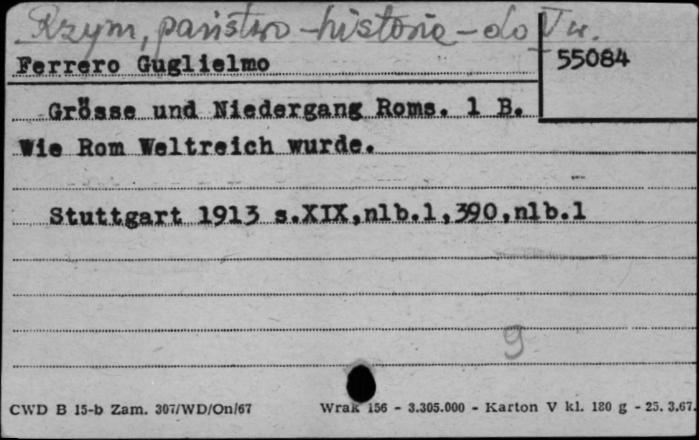 Rzym, państwo - historia - do V w.
Ferrero Guglielmo
55084
Grösse und Niedergang Roms. 1 B.
Wie Rom Weltreich wurde.
Stuttgart 1913 s.XIX,nlb.1,390,nlb.1
9
CWD B 15-b Zam. 307/WD/On/67 Wrak 156 - 3.305.000 - Karton V kl. 180 g - 25. 3.67.